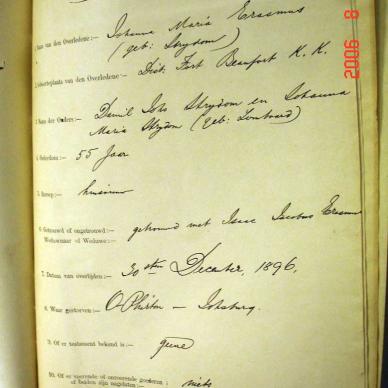 1. Naam van den Overledene:— Johanna Maria Erasmus
(geb: Strydom)
2. Geboorteplaats van den Overledene:— Dist. Fort Beaufort K. K.
3. Naam der Ouders:— Daniel Johs Strydom en Johanna
Maria Strydom (geb: Lombard)
4. Ouderdom:— 55 Jaar
5. Beroep:— huisvrouw
6. Getrouwd of ongetrouwd:— getrouwd met Isaac Jacobus Erasmus
Weduwnaar of Weduwe:—
7. Datum van overlijden:— 30sten December, 1896.
8. Waar gestorven:— — Johsburg.
9. Of er testament bekend is:— geene
10. Of er roerende of onroerende goederen
of beiden zijn nagelaten:— niets
2006 8